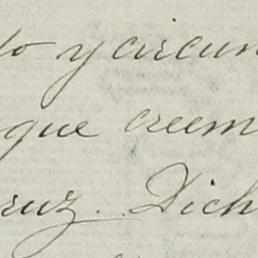 do y circun
que creem
ruz. Dich